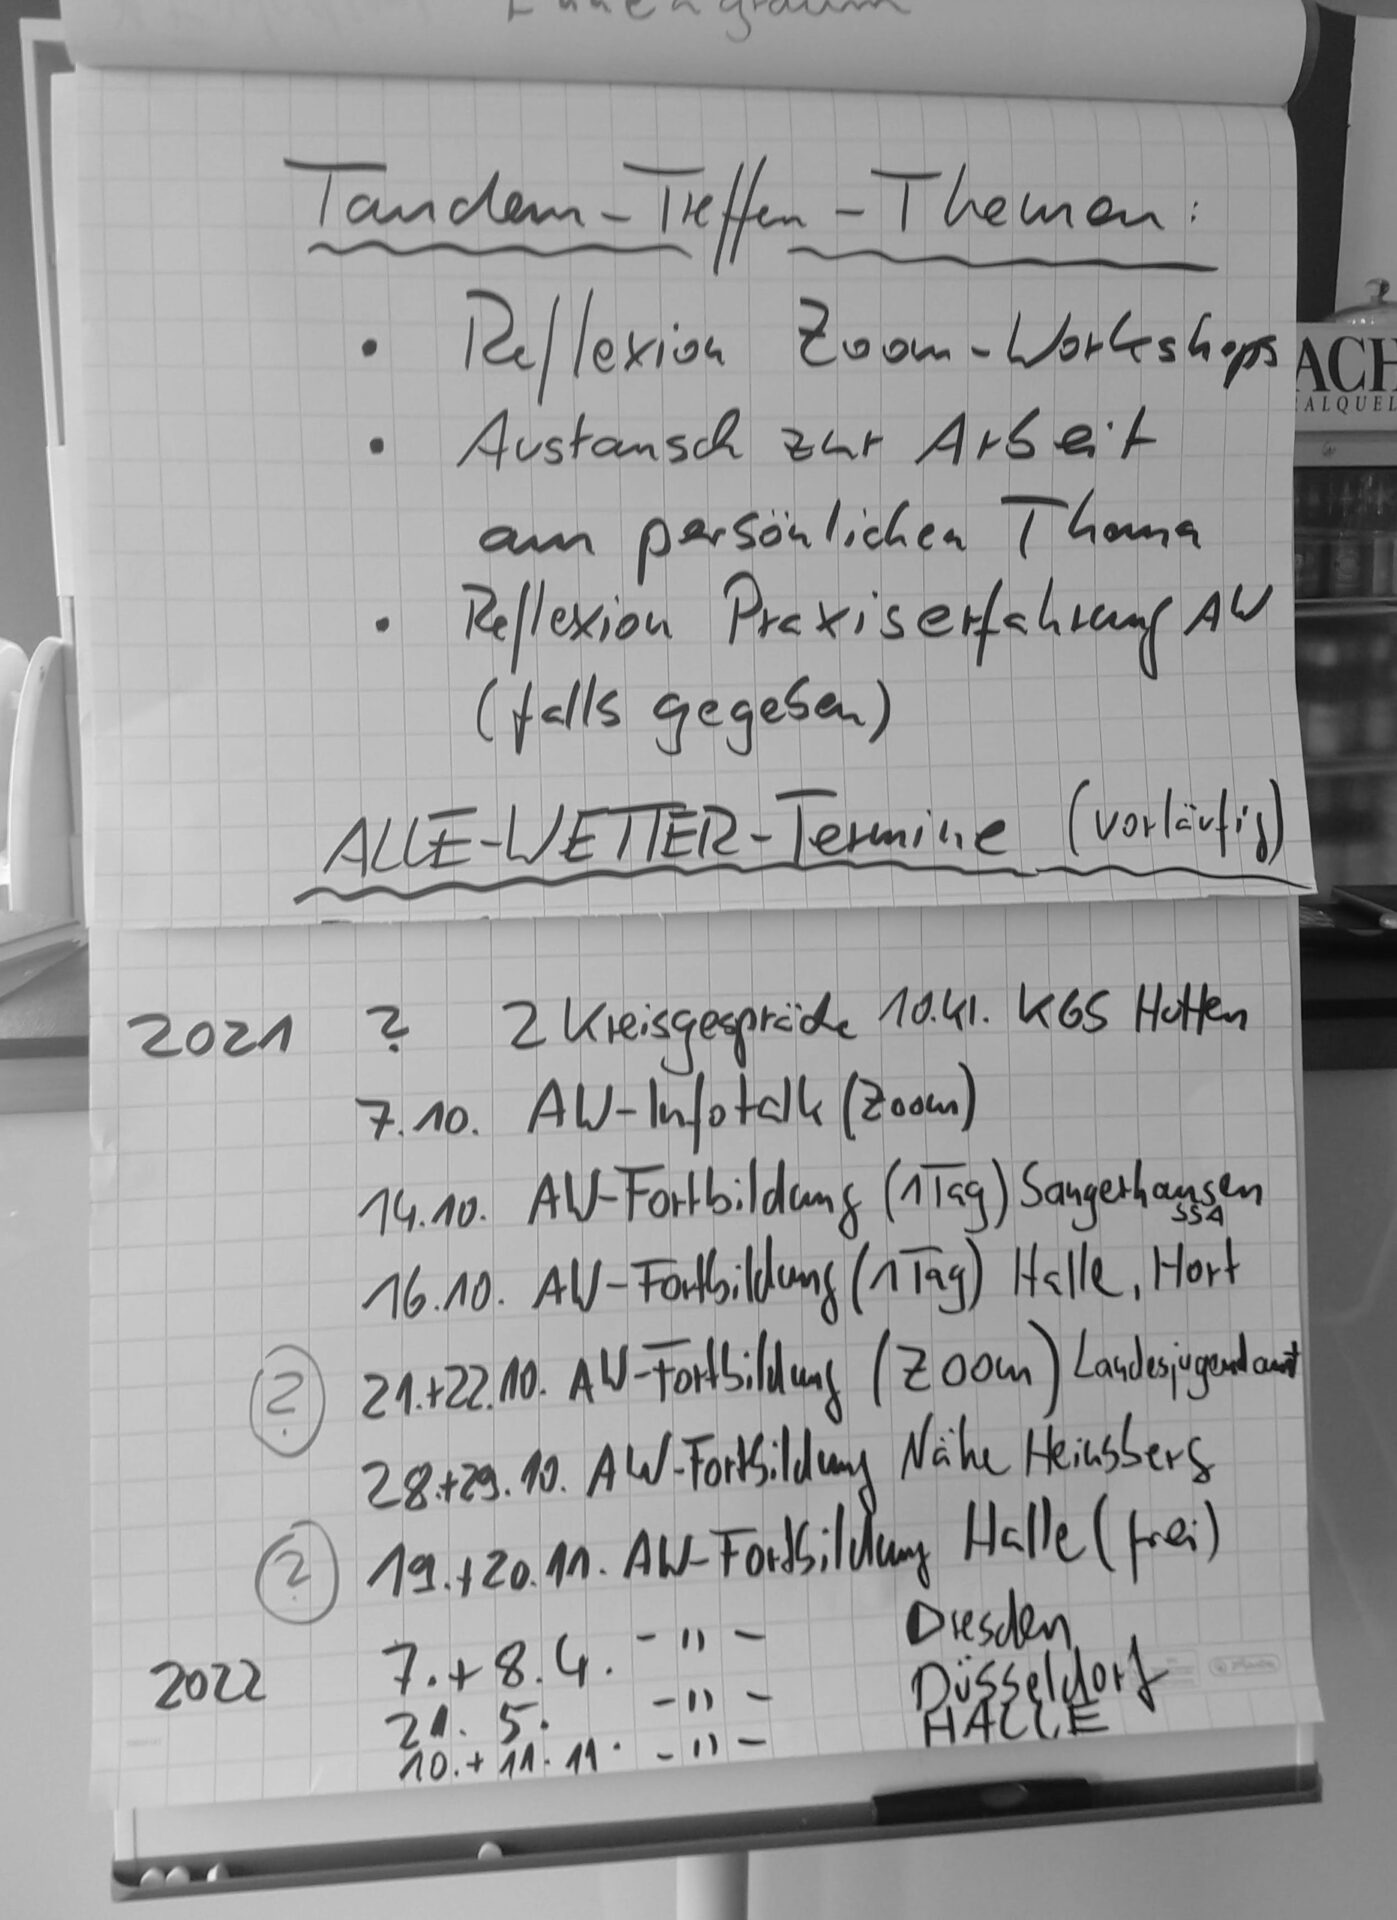 Tandem-Treffen-Themen:
• Reflexion Zoom-Workshops
• Austausch zur Arbeit
am persönlichen Thema
• Reflexion Praxiserfahrung AW
(falls gegeben)
ALLE-WETTER-Termine (vorläufig)
2021 ? 2 Kreisgespräche 10.Kl. KGS Hutten
7.10. AW-Infotalk (Zoom)
14.10. AW-Fortbildung (1 Tag) Sangerhausen
SSA
16.10. AW-Fortbildung (1 Tag) Halle, Hort
? 21.+22.10. AW-Fortbildung (Zoom) Landesjugendamt
28.+29.10. AW-Fortbildung Nähe Heinsberg
? 19.+20.11. AW-Fortbildung Halle (frei)
2022 7.+8.4. -"- Dresden
21.5. -"- Düsseldorf
10.+11.11. -"- HALLE
ACH
ALQUEL